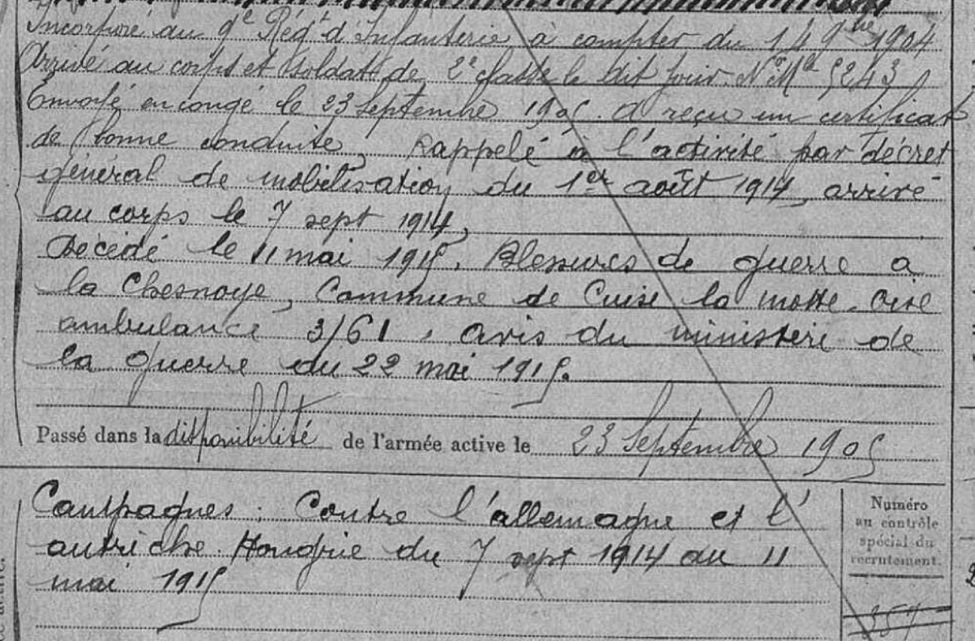 Incorporé au 9e Régt d'Infanterie à compter du 14 9bre 1904
Arrivé au corps et soldat de 2e classe le dit jour. No Mle 5243
Envoyé en congé le 23 Septembre 1905. A reçu un certificat
de bonne conduite, Rappelé à l'activité par décret
général de mobilisation du 1er août 1914, arrivé
au corps le 7 sept 1914,
Décédé le 11 mai 1915. Blessures de guerre a
la Chesnoye, Commune de Cuise la motte. Oise
ambulance 3/61, avis du ministère de
la guerre du 22 mai 1915.
Passé dans la disponibilité de l'armée active le 23 Septembre 1905
Campagnes : Contre l'allemagne et l'
autriche Hongrie du 7 sept 1914 au 11
mai 1915
Numéro
au contrôle
spécial du
recrutement.